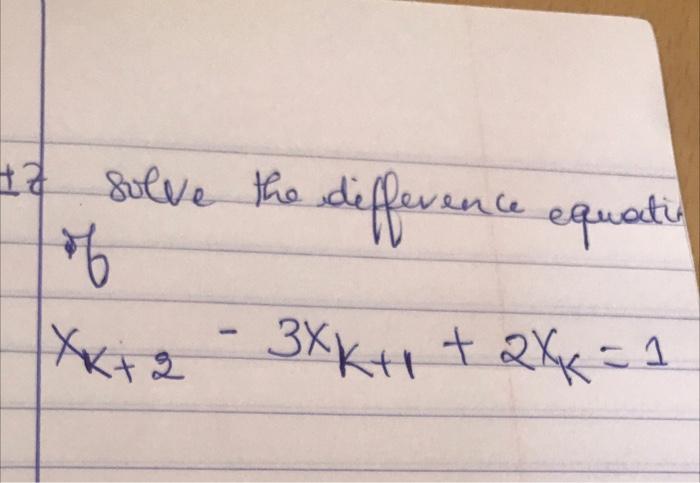 solve the difference equati
of
x_{K+2} - 3x_{K+1} + 2x_K = 1